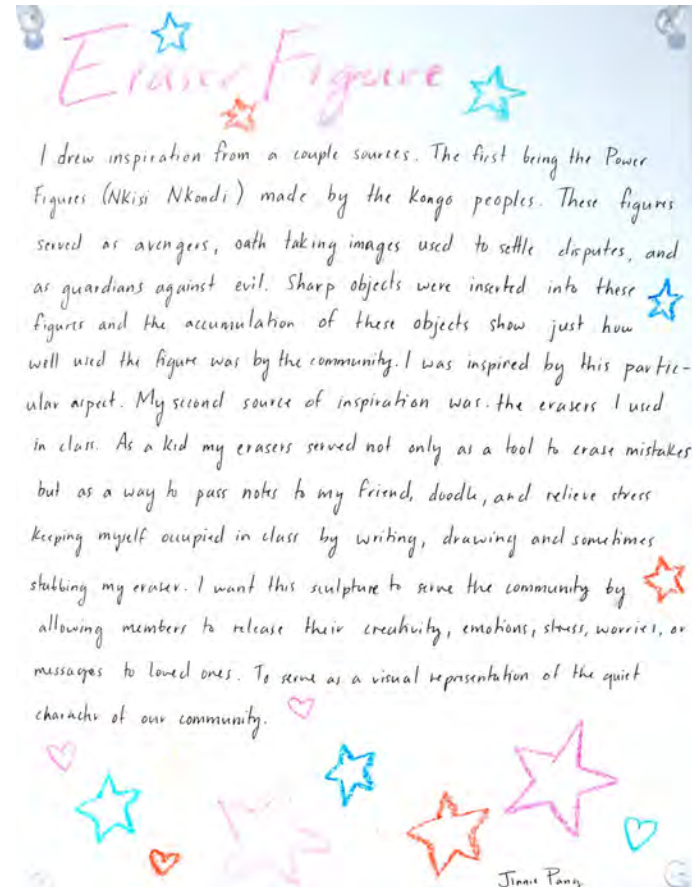 Eraser Figure
I drew inspiration from a couple sources. The first being the Power
Figures (NKisi NKondi) made by the Kongo peoples. These figures
served as avengers, oath taking images used to settle disputes, and
as guardians against evil. Sharp objects were inserted into these
figures and the accumulation of these objects show just how
well used the figure was by the community. I was inspired by this partic-
ular aspect. My second source of inspiration was the erasers I used
in class. As a kid my erasers served not only as a tool to erase mistakes
but as a way to pass notes to my friend, doodle, and relieve stress
keeping myself occupied in class by writing, drawing and sometimes
stabbing my eraser. I want this sculpture to serve the community by
allowing members to release their creativity, emotions, stress, worries, or
messages to loved ones. To serve as a visual representation of the quiet
character of our community.
Jinnie Pang